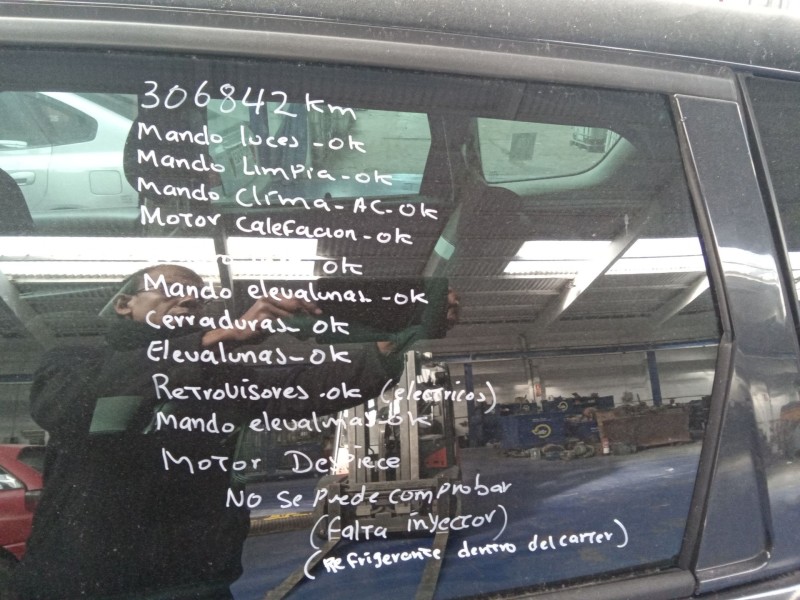 306842 km
Mando luces - ok
Mando Limpia - ok
Mando Clima - AC - ok
Motor Calefacion - ok
ok
Mando elevalunas - ok
Cerraduras ok
Elevalunas - ok
Retrovisores . ok (electricos)
Mando elevalunas - ok
Motor Despiece
No se puede comprobar
(Falta inyector)
(Refrigerante dentro del carter)